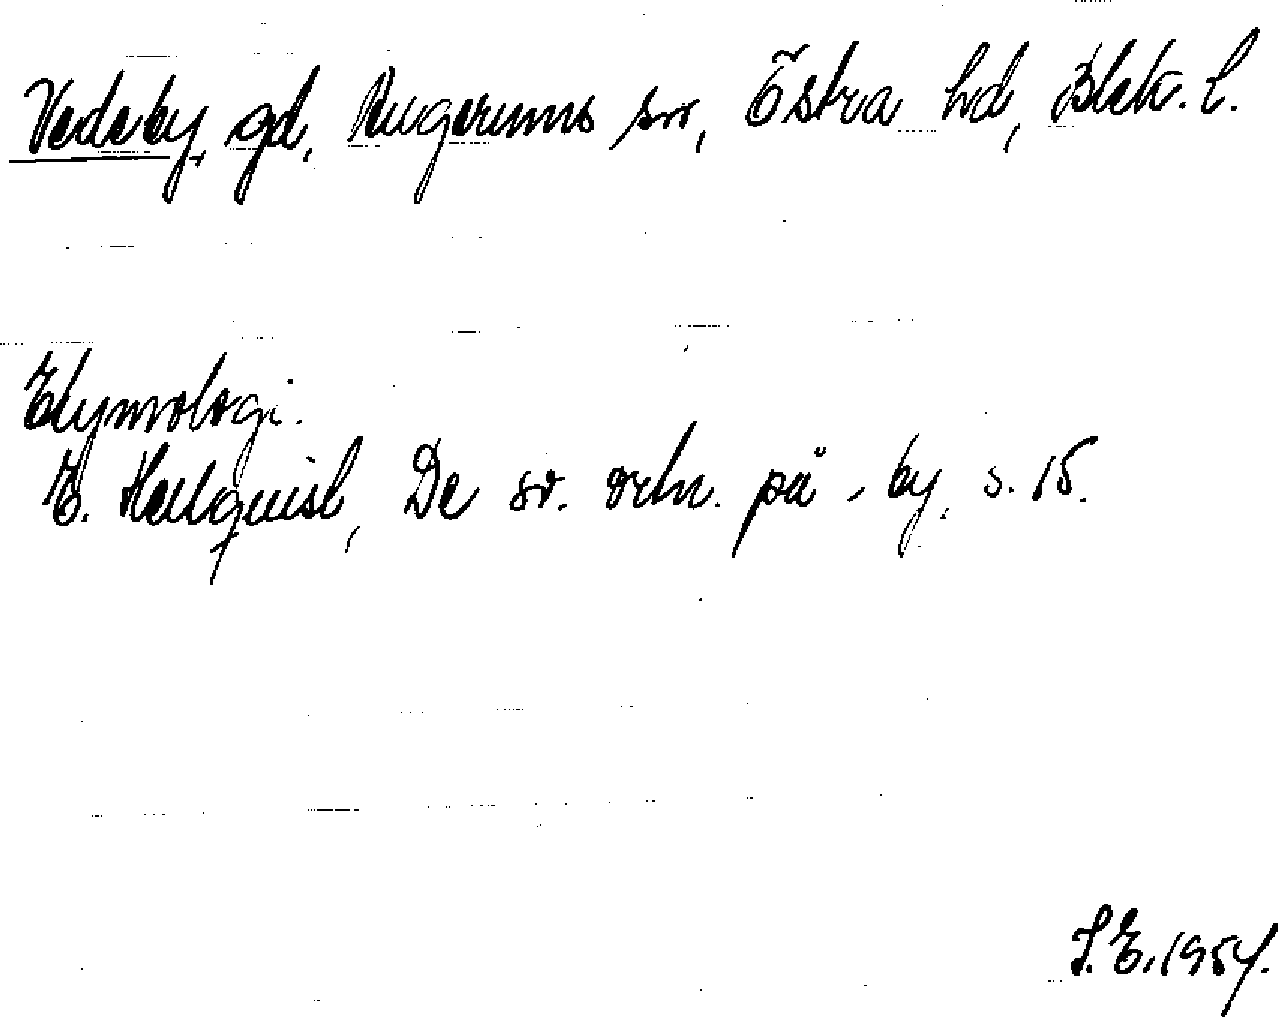 Vedeby, gd, Augerums sn, Östra hd, Blek. l.
Etymologi.
E. Hellquist, De sv. ortn. på -by, s. 15.
S.E. 1954.